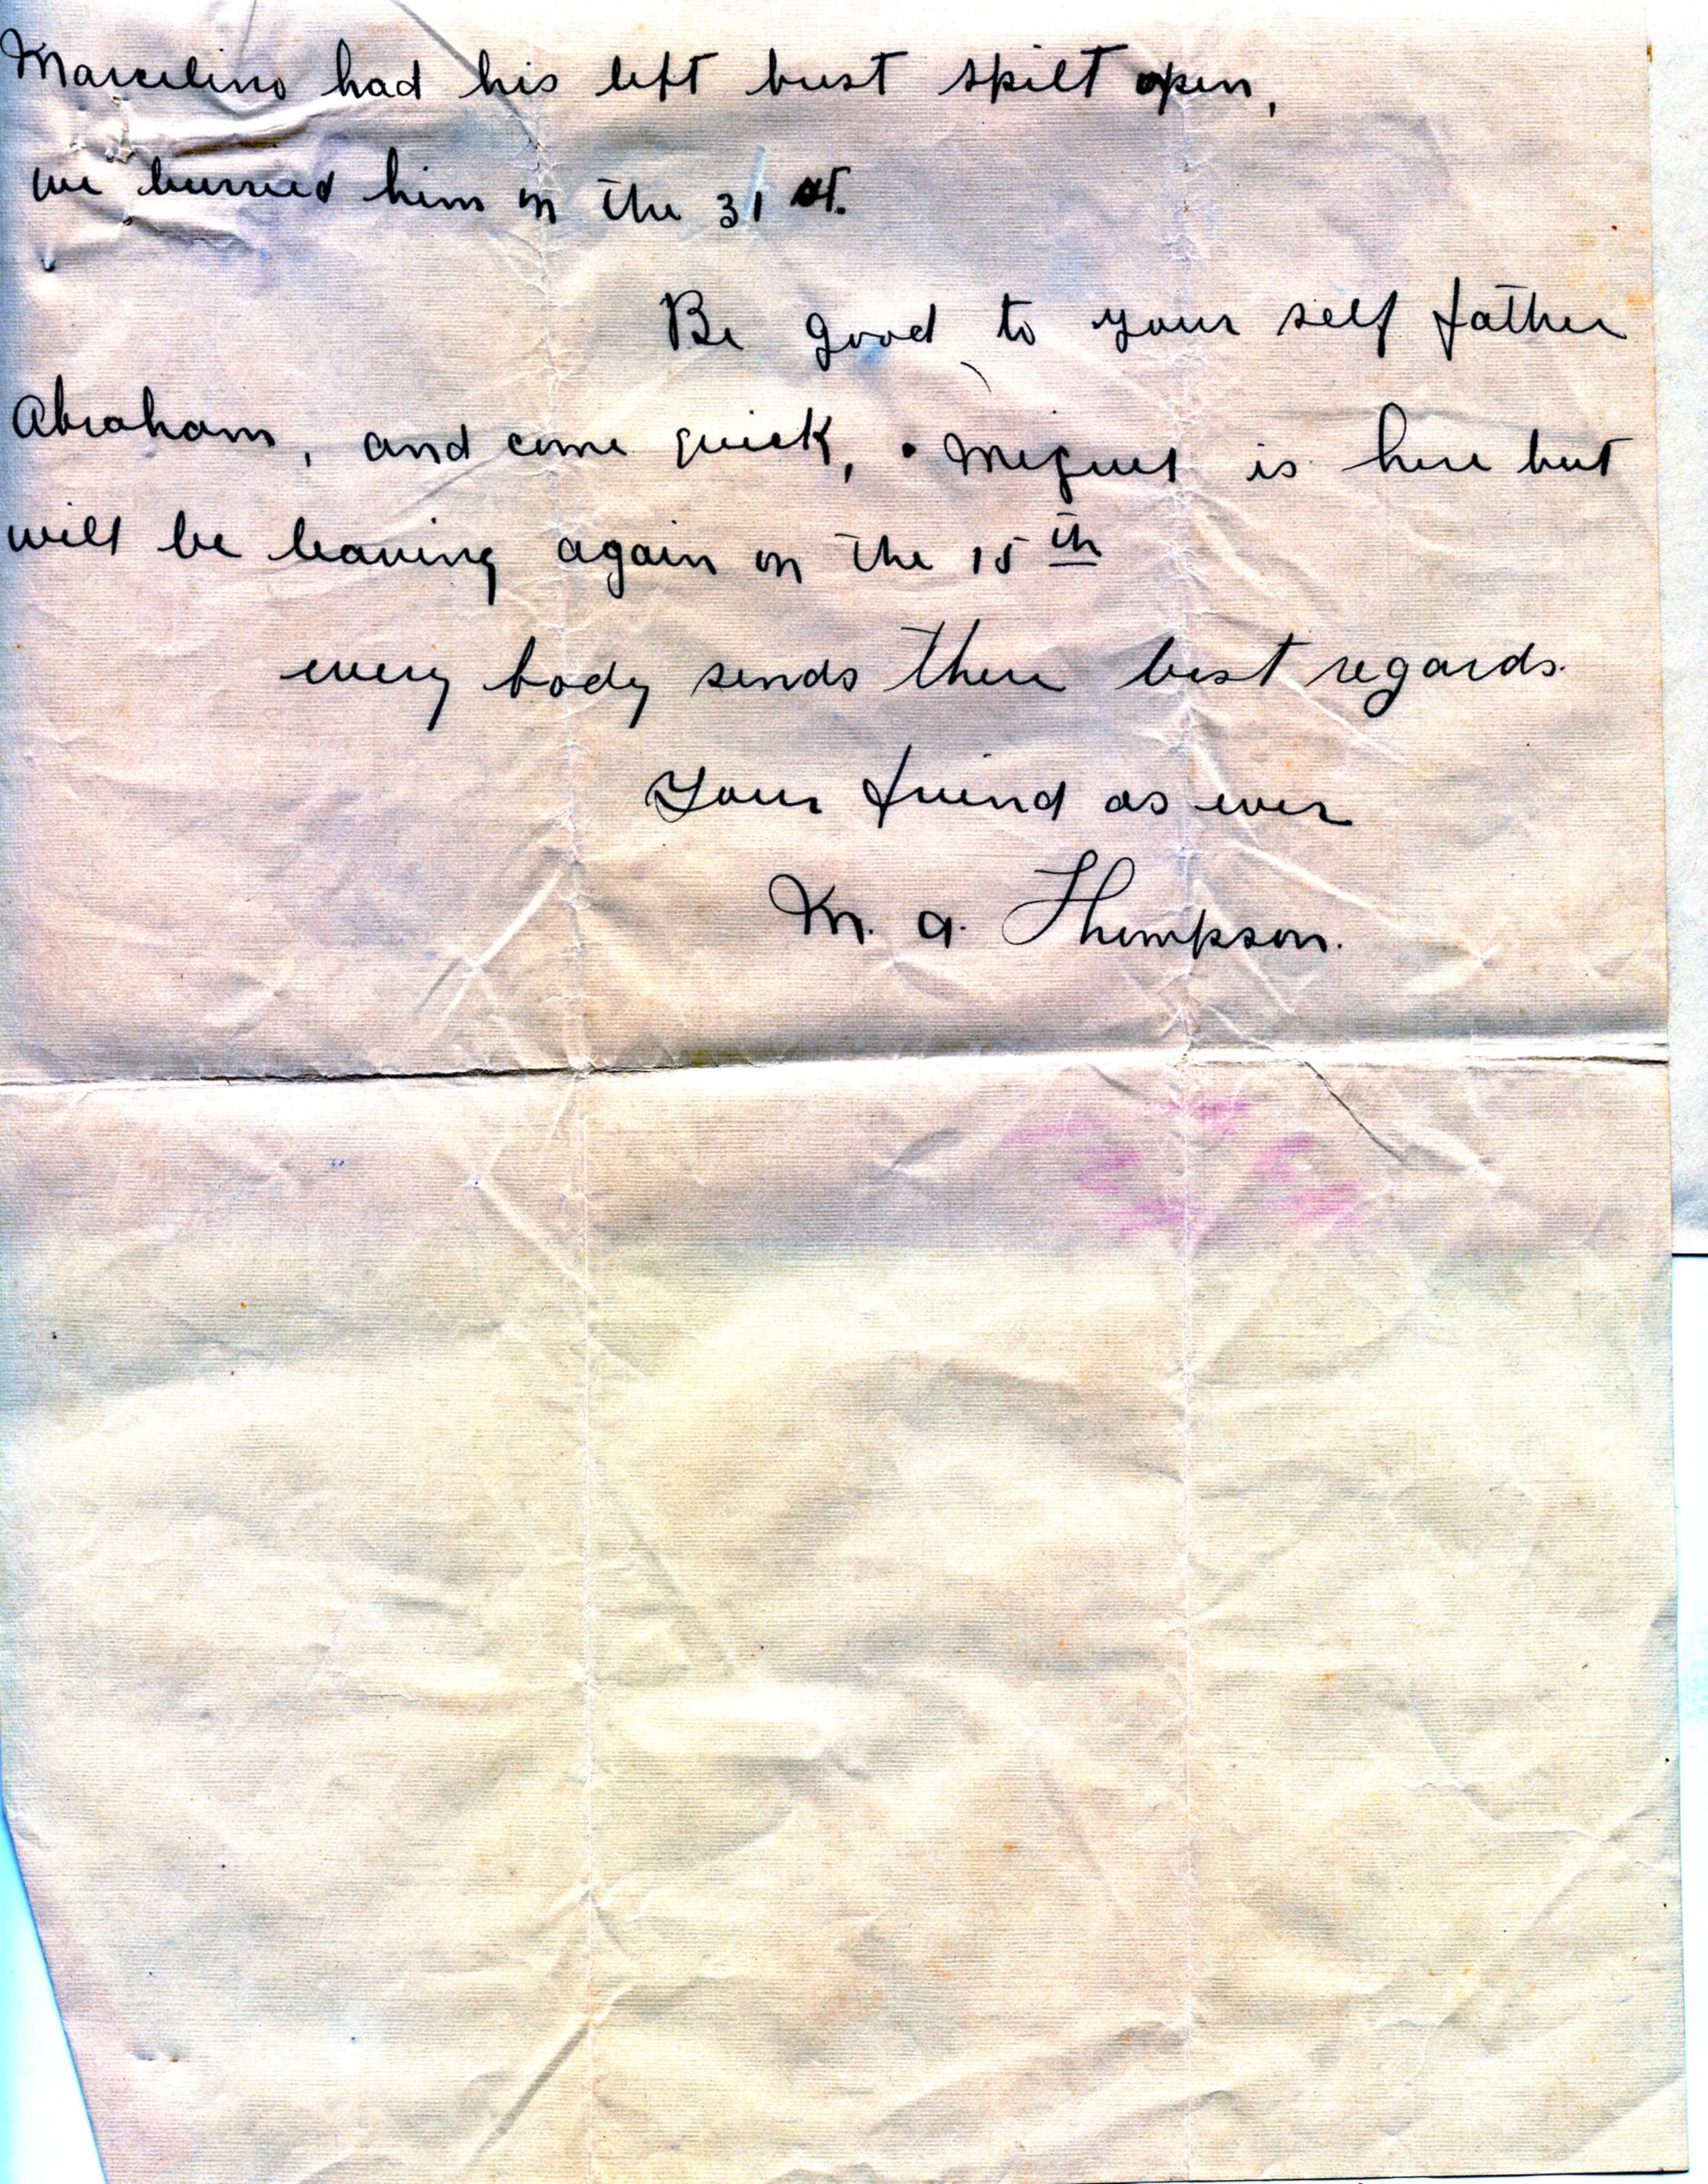 Marcelino had his left bust spilt open,
we burried him on the 31 st.
Be good to your self father
Abraham, and come quick, Miguel is here but
will be leaving again on the 15th
every body sends there best regards.
Your friend as ever
M. A. Thompson.